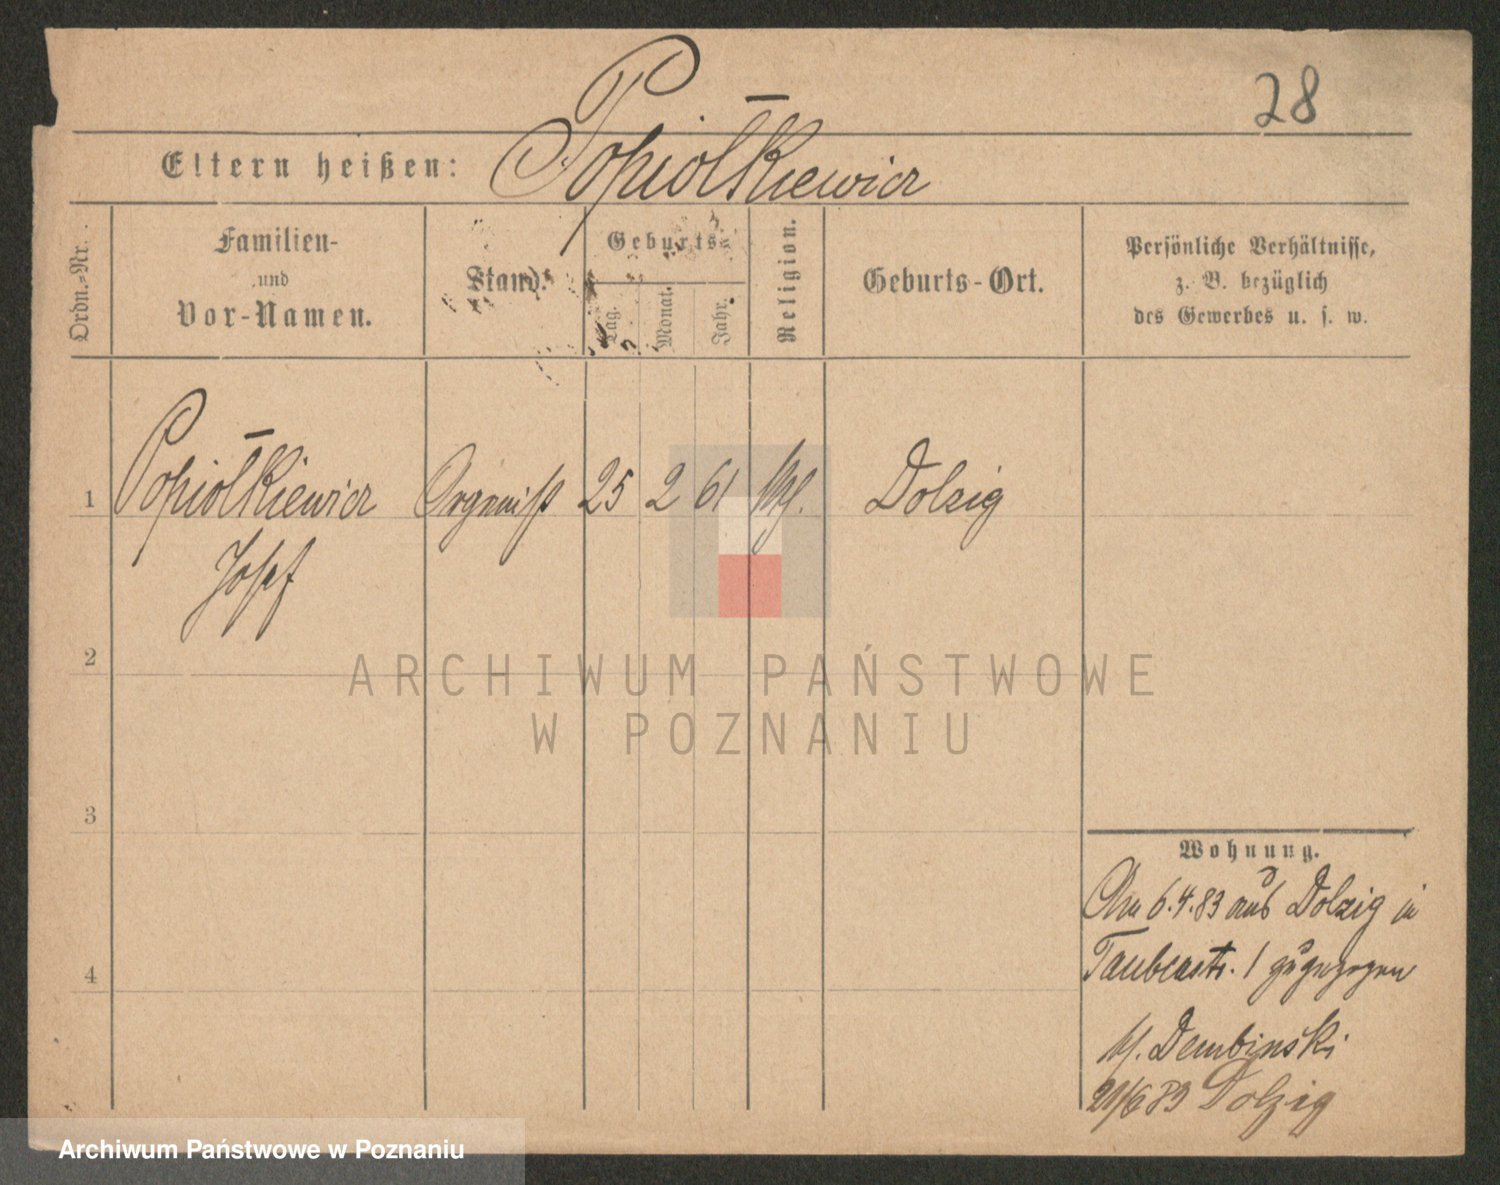 28
Eltern heißen: Popiołkiewicz
Ordn.-Nr.
Familien-
und
Vor-Namen.
Stand.
Geburts-
Tag.
Monat.
Jahr.
Religion.
Geburts-Ort.
Persönliche Verhältnisse,
z. B. bezüglich
des Gewerbes u. s. w.
1 Popiołkiewicz Organist 25 2 61 Dolzig
Josef
2
ARCHIWUM PAŃSTWOWE
W POZNANIU
3
4
Wohnung.
6.4.83 aus Dolzig in
Taubenstr. 1 zugezogen
Dembinski
Dolzig
Archiwum Państwowe w Poznaniu